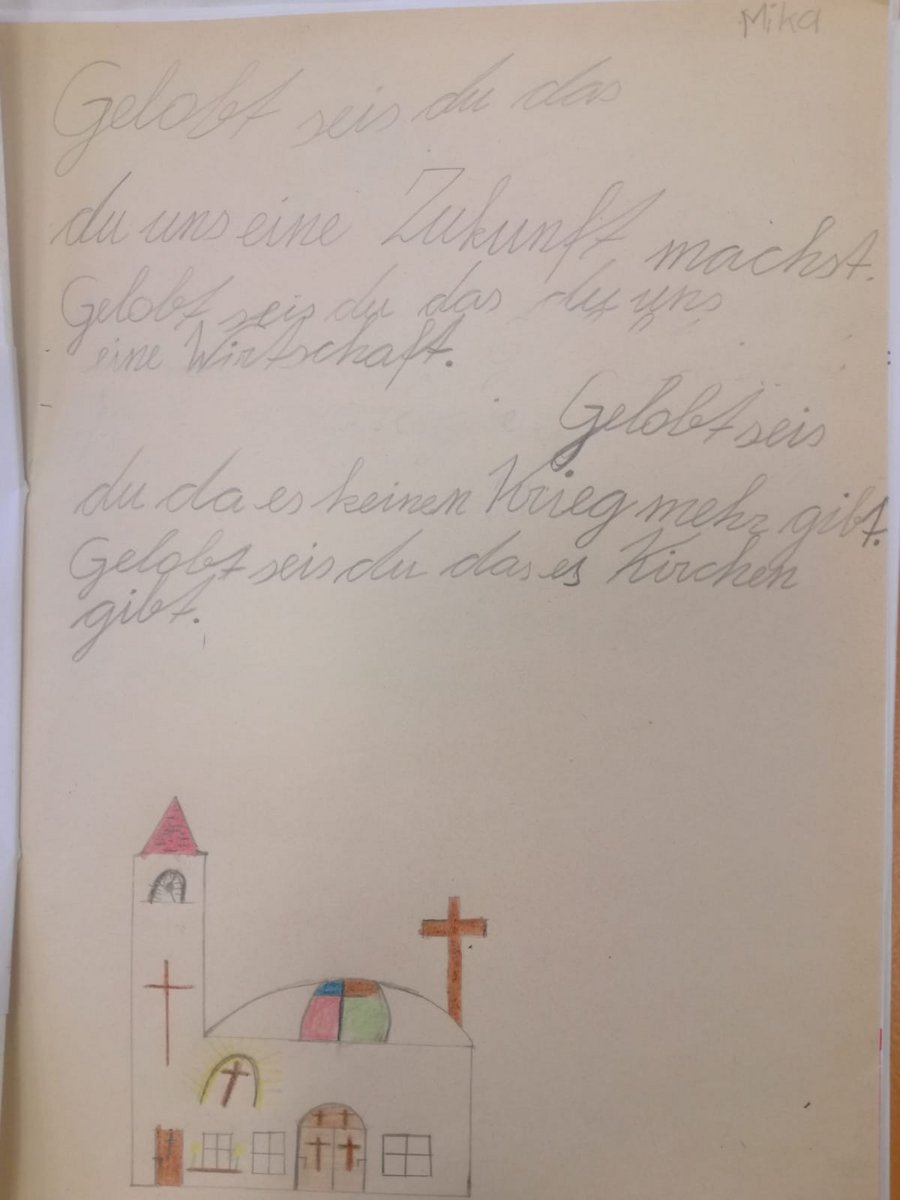 Mika
Gelobt seis du das
du uns eine Zukunft machst.
Gelobt seis du das du uns
eine Wirtschaft.
Gelobt seis
du da es keinen Krieg mehr gibt.
Gelobt seis du das es Kirchen
gibt.